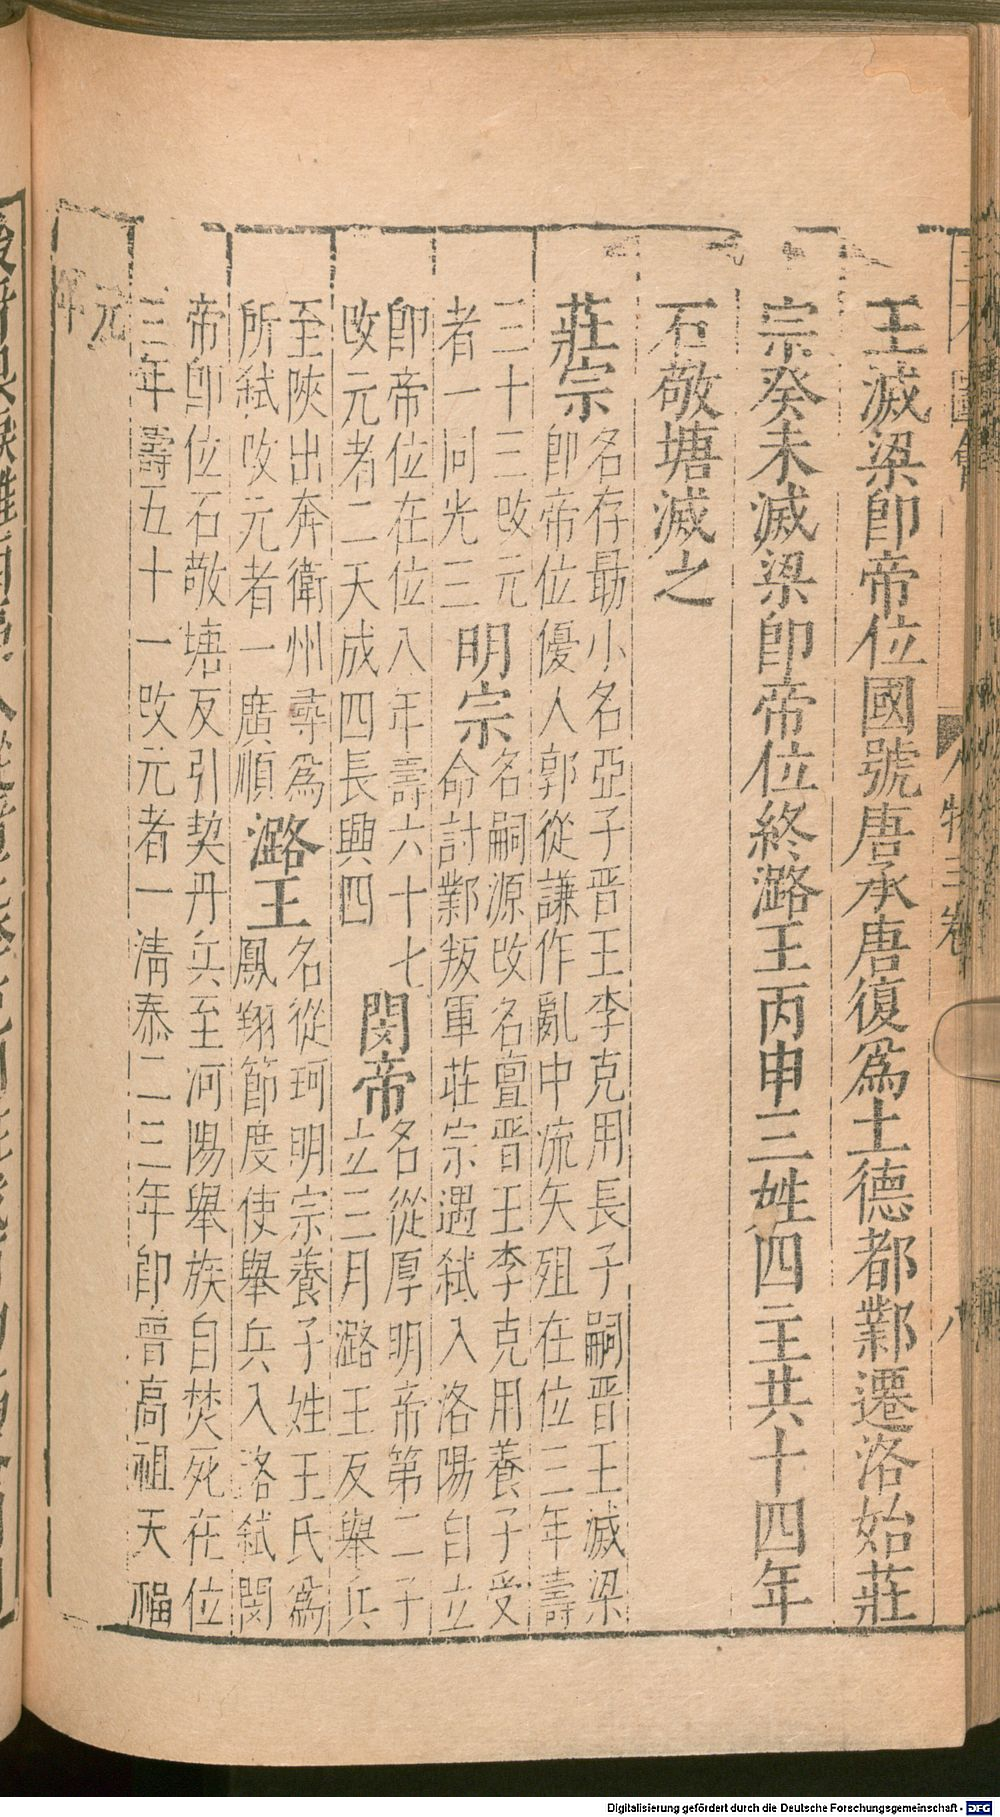 王滅梁即帝位國號唐承唐復爲土德都鄴遷洛始莊
宗癸未滅梁即帝位終潞王丙申三姓四主共十四年
石敬塘滅之
莊宗
名存勗小名亞子晉王李克用長子嗣晉王滅梁
即帝位優人郭從謙作亂中流矢殂在位三年壽
三十三改元
者一同光三
明宗
名嗣源改名亶晉王李克用養子受
命討鄴叛軍莊宗遇弑入洛陽自立
即帝位在位八年壽六十七
改元者二天成四長興四
閔帝
名從厚明帝第二子
立三月潞王反舉兵
至陜出奔衛州尋爲
所弑改元者一廣順
潞王
名從珂明宗養子姓王氏爲
鳳翔節度使舉兵入洛弑閔
帝即位石敬塘反引契丹兵至河陽舉族自焚死在位
三年壽五十一改元者一清泰二三年即晉高祖天福
元
年
物三卷
八
Digitalisierung gefördert durch die Deutsche Forschungsgemeinschaft - DFG